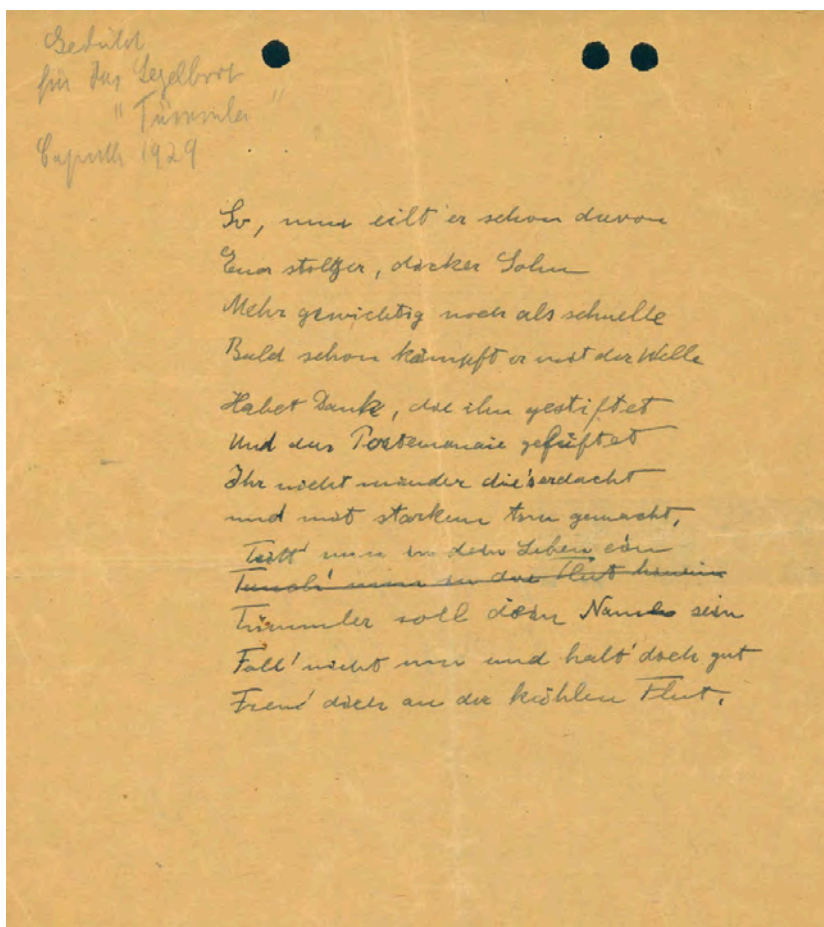 Gedicht
für das Segelboot
"Tümmler"
Caputh 1929
So, nun eilt er schon davon
Euer stolzer, dicker Sohn
Mehr gewichtig noch als schnelle
Bald schon kämpft er mit der Welle
Habet Dank, die ihn gestiftet
Und das Portemonaie gelüftet
Ihr nicht minder die's erdacht
und mit starkem gemacht,
Tritt' nun in dein Leben ein
Tauch' nun in die Flut hinein
Tümmler soll dein Name sein
Fall' nicht um und halt' dich gut
Freu' dich an der kühlen Flut.